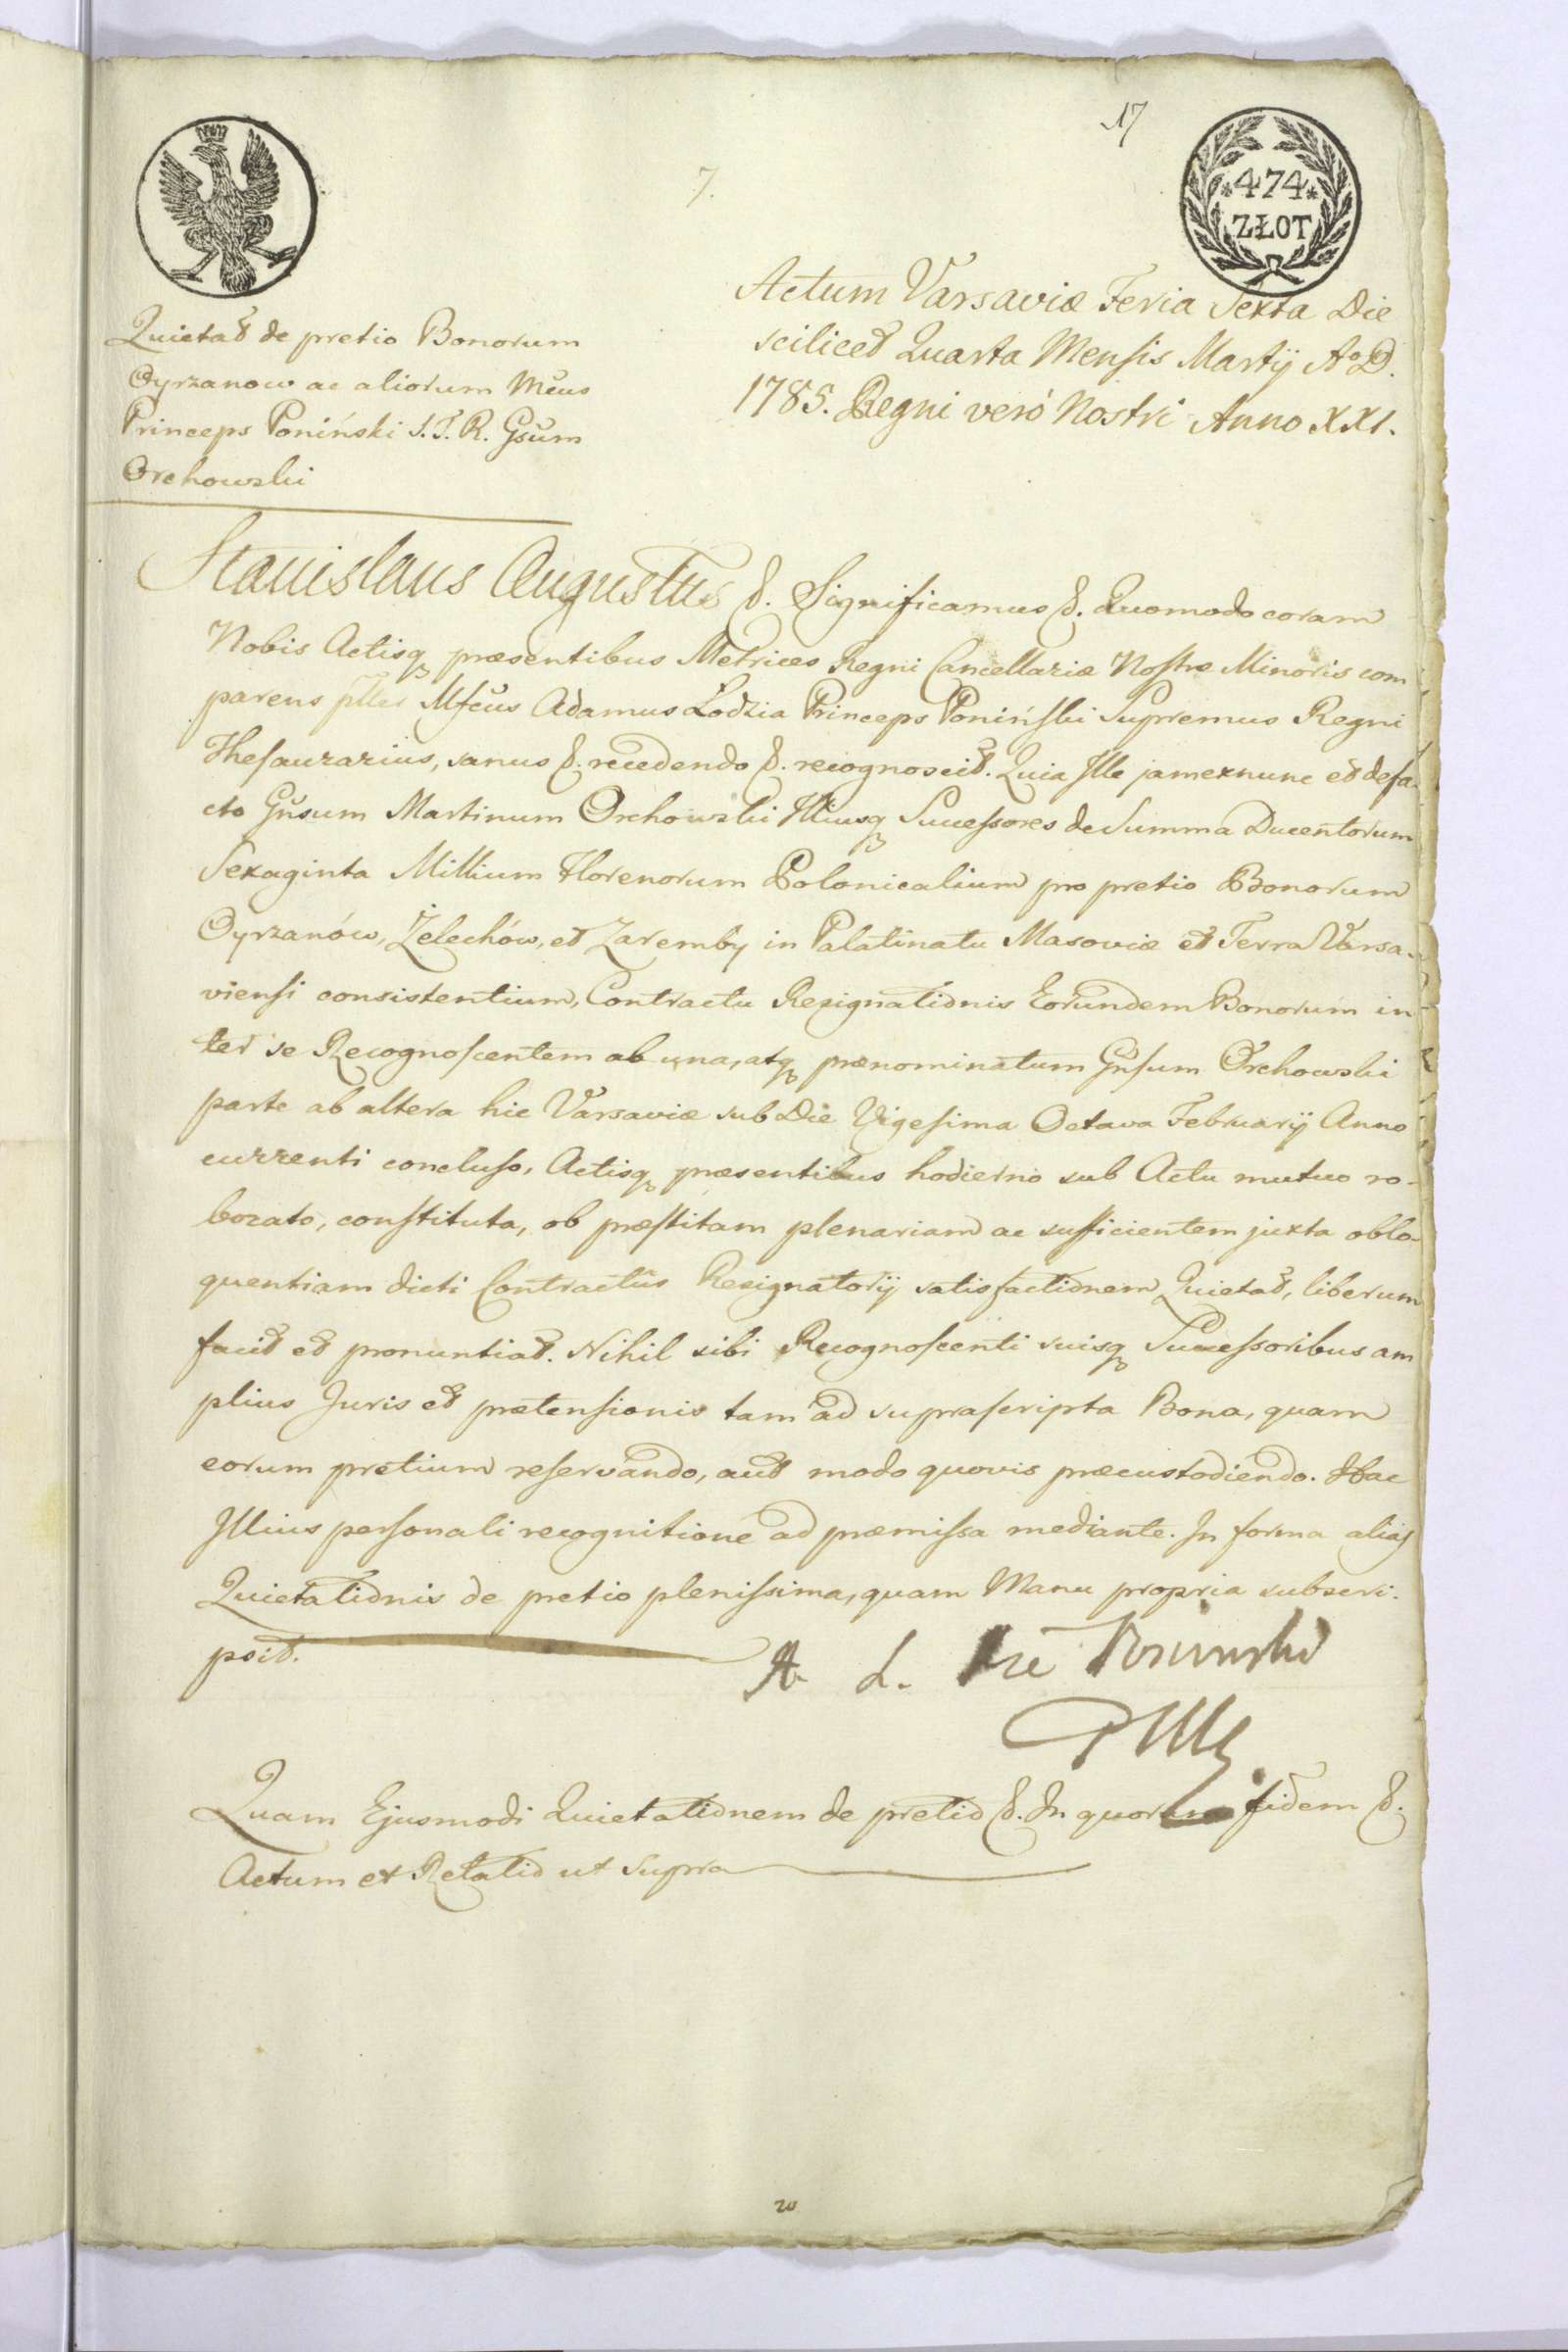 17
7.
*474*
ZŁOT
Actum Varsaviæ Feria Sexta Die
scilicet Quarta Mensis Martij A° D.
1785. Regni veró Nostri Anno XXI.
Quietat de pretio Bonorum
Oyrzanow ac aliorum Mcus
Princeps Poniński S. T. R. Gsum
Orchowski
Stanislaus Augustus &. Significamus &. Quomodo coram
Nobis Actisq præsentibus Metrices Regni Cancellariæ Nostræ Minoris com
parens Illris Mfcus Adamus Łodzia Princeps Poniński Supremus Regni
Thesaurarius, sanus &. recedendo &. recognoscit. Quia Ille jam exnunc et defa-
cto Gnsum Martinum Orchowski Illiusq Successores de Summa Ducentorum
Sexaginta Millium Florenorum Polonicalium pro pretio Bonorum
Oyrzanów, Żelechów, et Zaremby in Palatinatu Masoviæ et Terra Varsa-
viensi consistentium, Contractu Resignationis Eorundem Bonorum in
ter se Recognoscentem ab una, atq prænominatum Gnsum Orchowski
parte ab altera hic Varsaviæ sub Die Vigesima Octava Februarij Anno
currenti concluso, Actisq præsentibus hodierno sub Actu mutuo ro-
borato, constituta, ob præstitam plenariam ac sufficientem juxta oblo-
quentiam dicti Contractûs Resignatorij satisfactionem Quietat, liberum
facit et pronuntiat. Nihil sibi Recognoscenti suisq Successoribus am
plius Juris et prætensionis tam ad suprascripta Bona, quam
eorum pretium reservando, aut modo quovis præcustodiendo. Hac
Illius personali recognitione ad præmissa mediante. In forma alias
Quietationis de pretio plenissima, quam Manu propria subscri-
psit.
A. L. Poninski
Quam Ejusmodi Quietationem de pretio &. In quorum fidem &.
Actum et Relatio ut supra
20